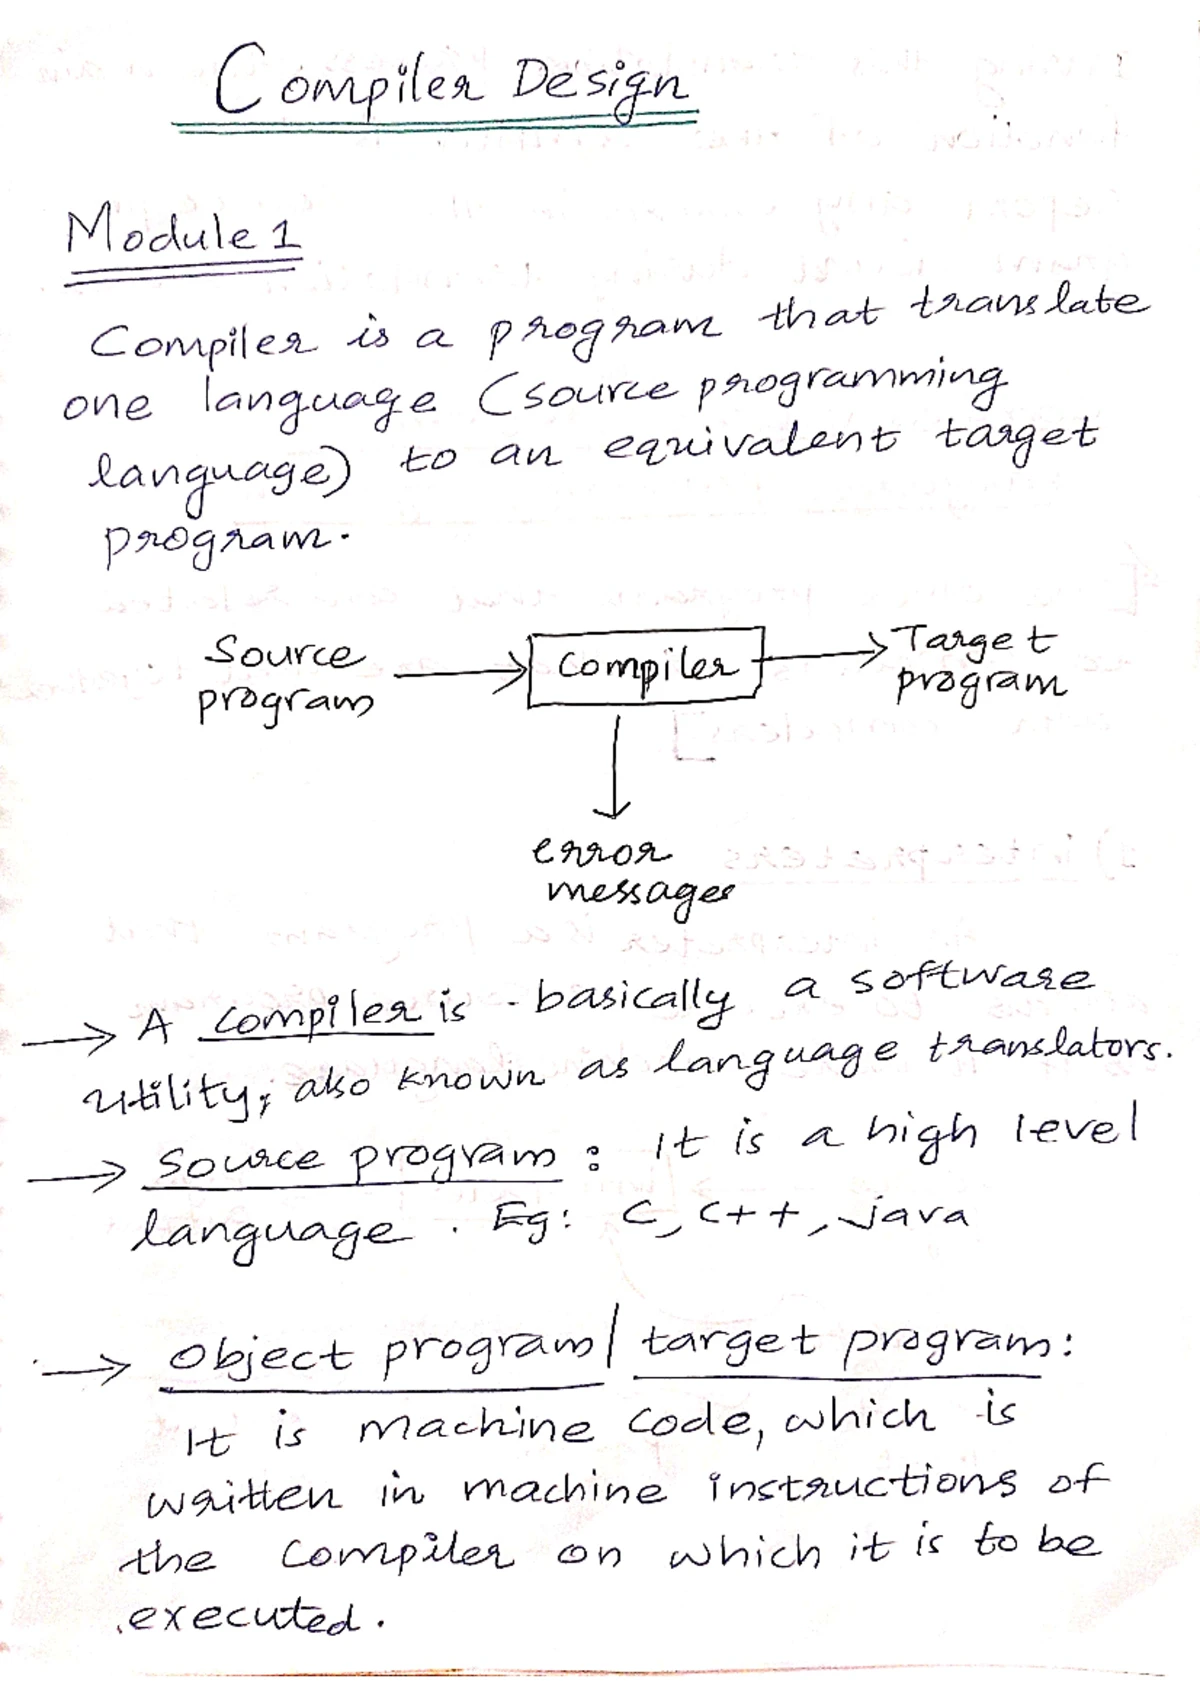 Compiler Design
Module 1
Compiler is a program that translate
one language (source programming
language) to an equivalent target
program.
Source
program
compiler
Target
program
error
messages
→ A compiler is basically a software
utility, also known as language translators.
→ Source program : It is a high level
language. Eg: C, C++, java
→ Object program / target program:
It is machine code, which is
written in machine instructions of
the compiler on which it is to be
executed.